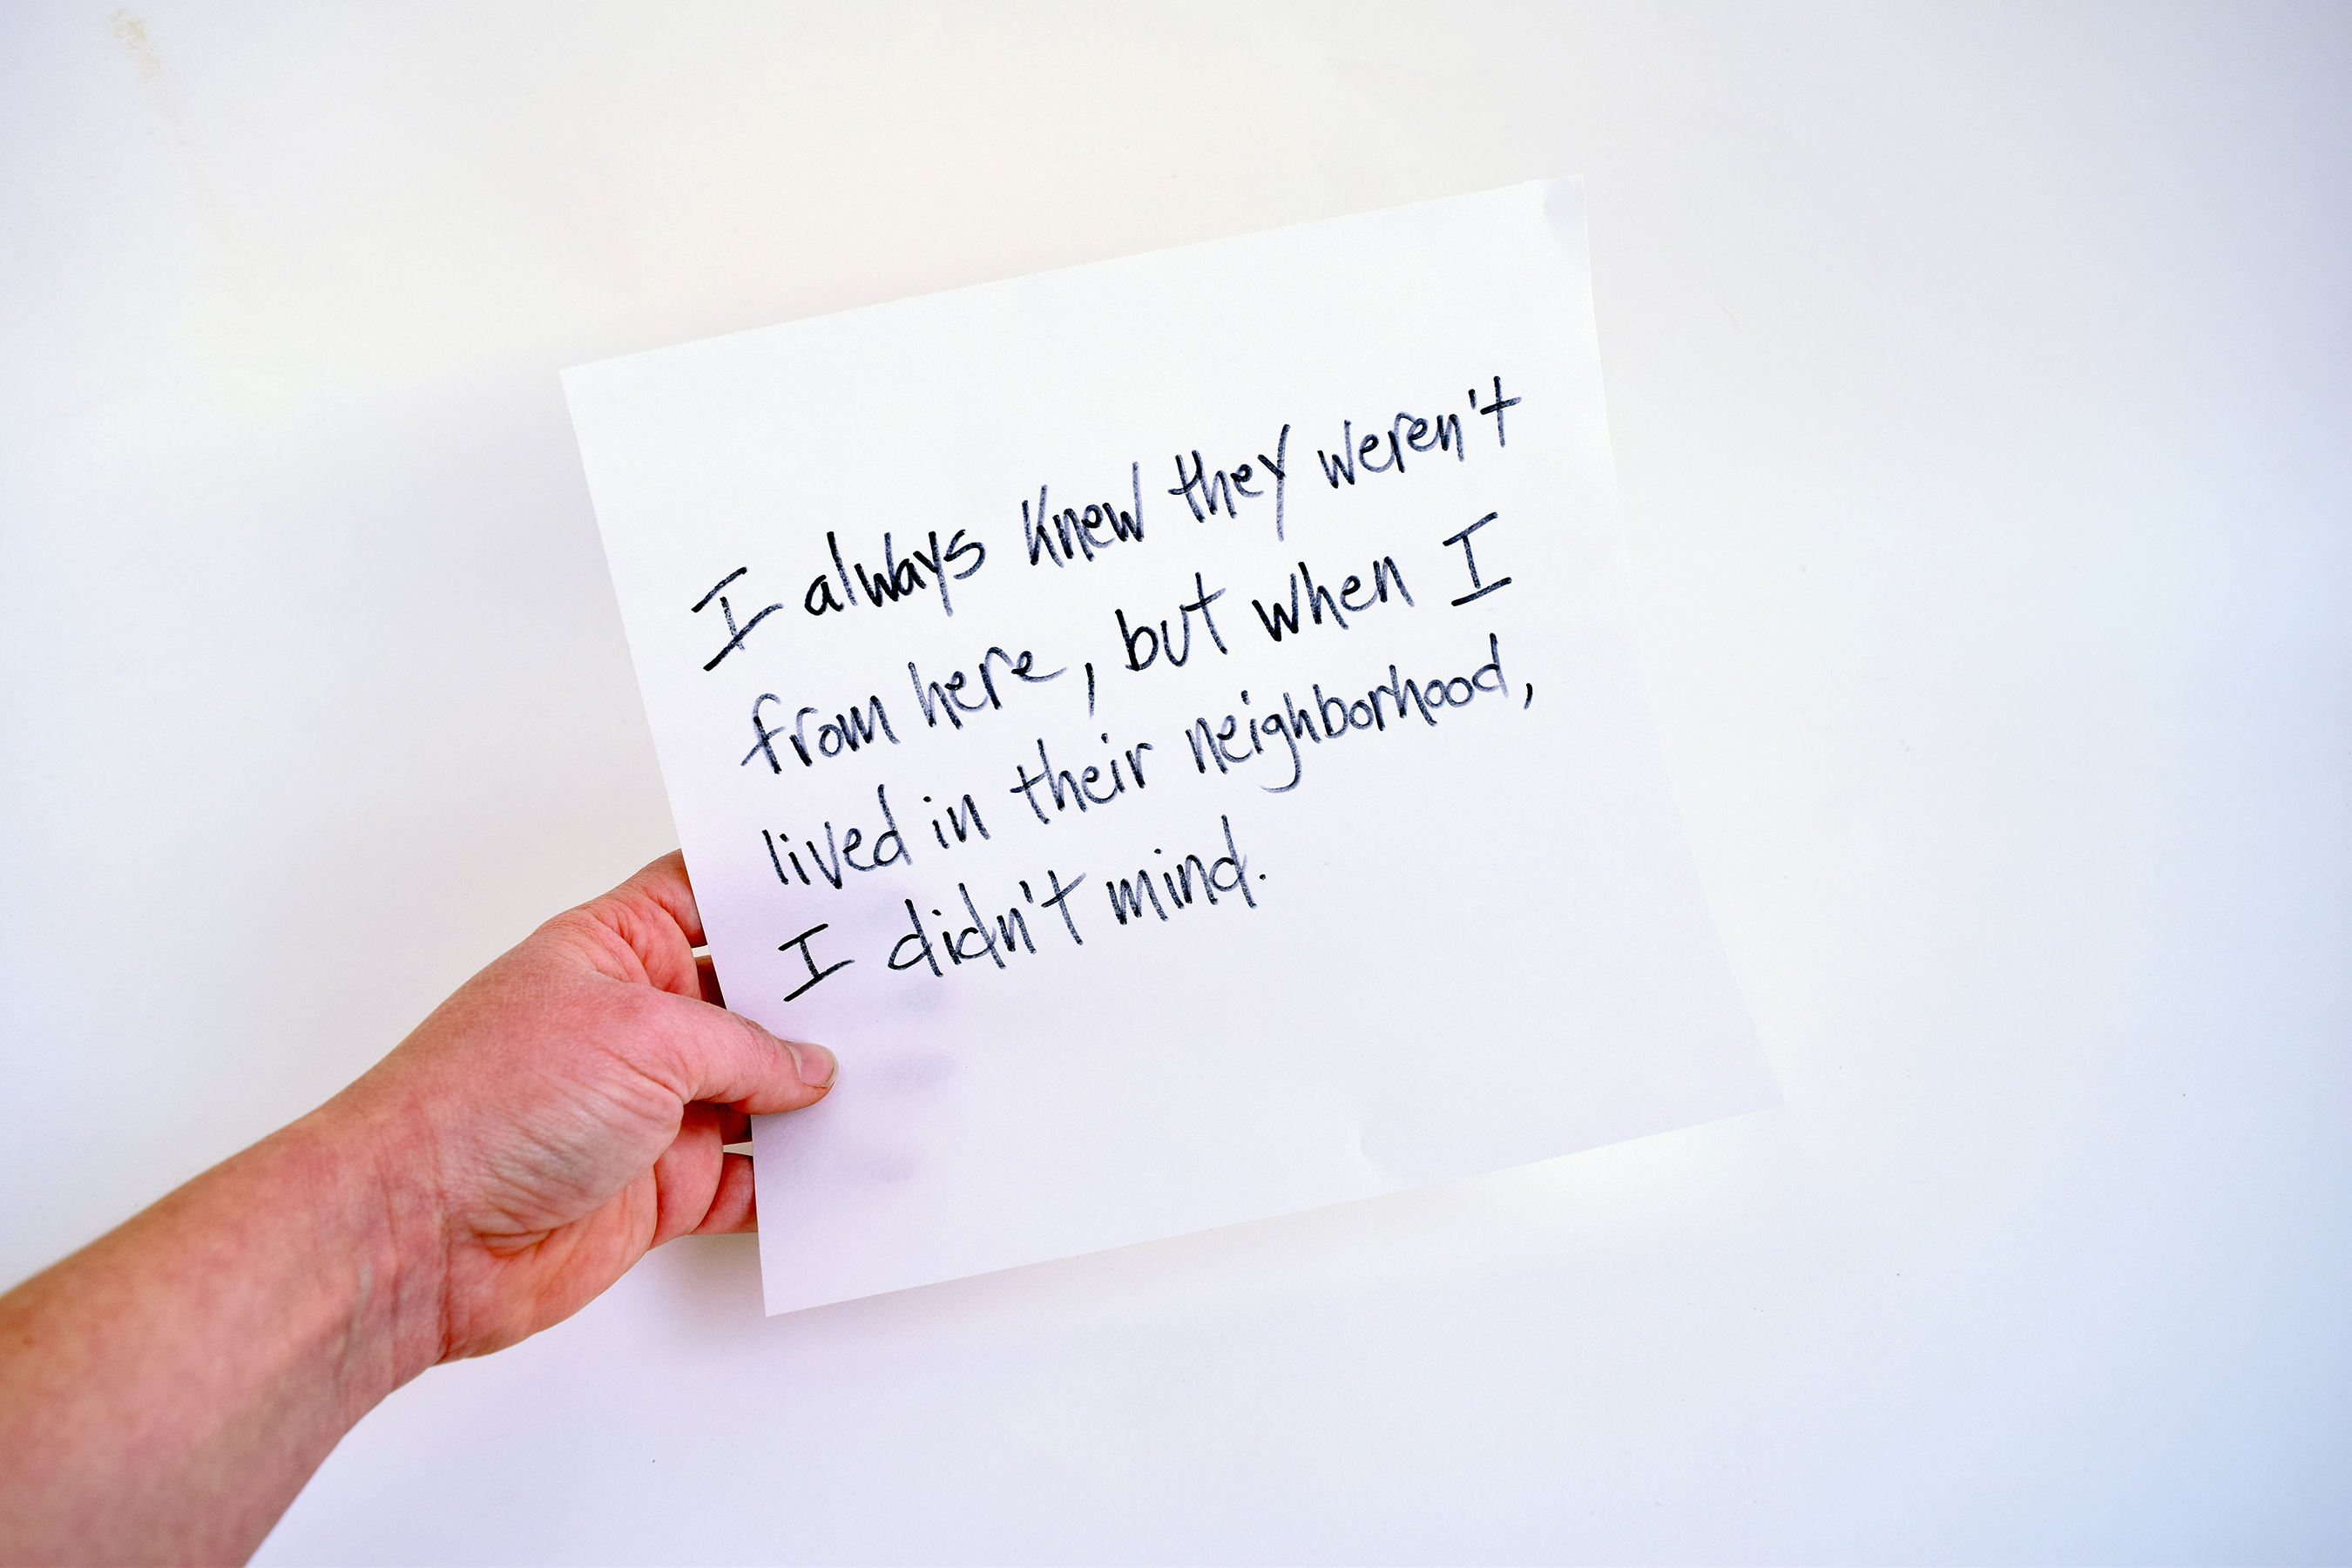 I always knew they weren't
from here, but when I
lived in their neighborhood,
I didn't mind.